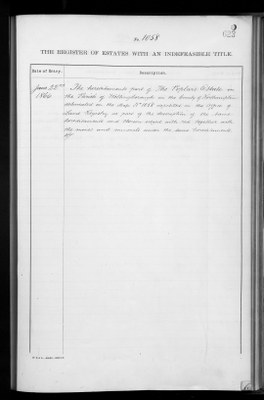 No 1058
THE REGISTER OF ESTATES WITH AN INDEFEASIBLE TITLE.
Date of Entry.
Description.
June 22nd The hereditaments part of The Poplars Estate in
1866 the Parish of Wellingborough in the County of Northampton
delineated on the Map No 1058 deposited in the Office of
Land Registry as part of the description of the same
hereditaments and thereon edged with red together with
the mines and minerals under the same hereditaments